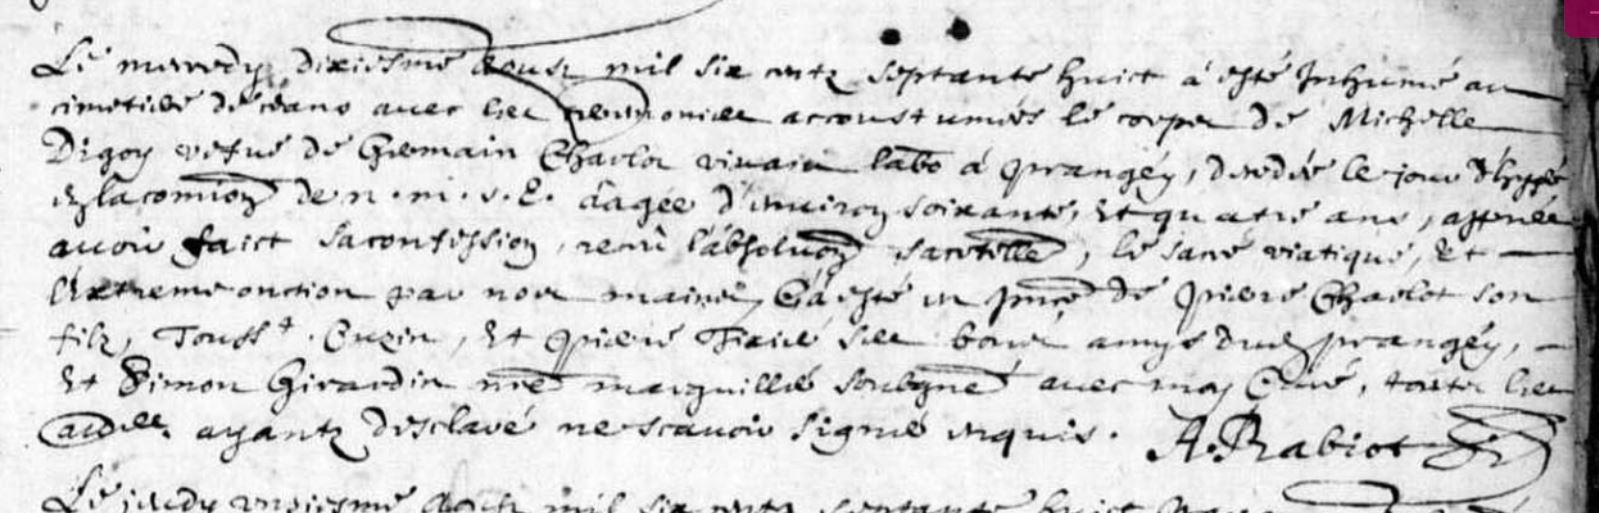 Le mercredy dixiesme Aoust mil six centz septante huict a esté Inhumé au
cimetiere de ceans avec les ceremonies accoustumées le corps de Michelle
Digoy vefve de Germain Charlot vivain labo à prangey, decedée le jour d'hyer
en la comion de n. m. s. E. aagée d'environ soixante, et quatre ans, apprés
avoir faict sa confession, receu l'absoluon sacrtelle, le sacré viatique, et
l'extreme onction par nos mains, Ca esté en pnce de pierre Charlot son
filz, Tousst. Cuzin, et pierre ses bons amys dud prangey,
et Simon Girardin nre marguillié soubsigné avec moy Curé, toutz les
autres ayantz desclaré ne scavoir signer enquis. A. Rabiot
Le jeudy unziesme Aoust mil six centz septante huict